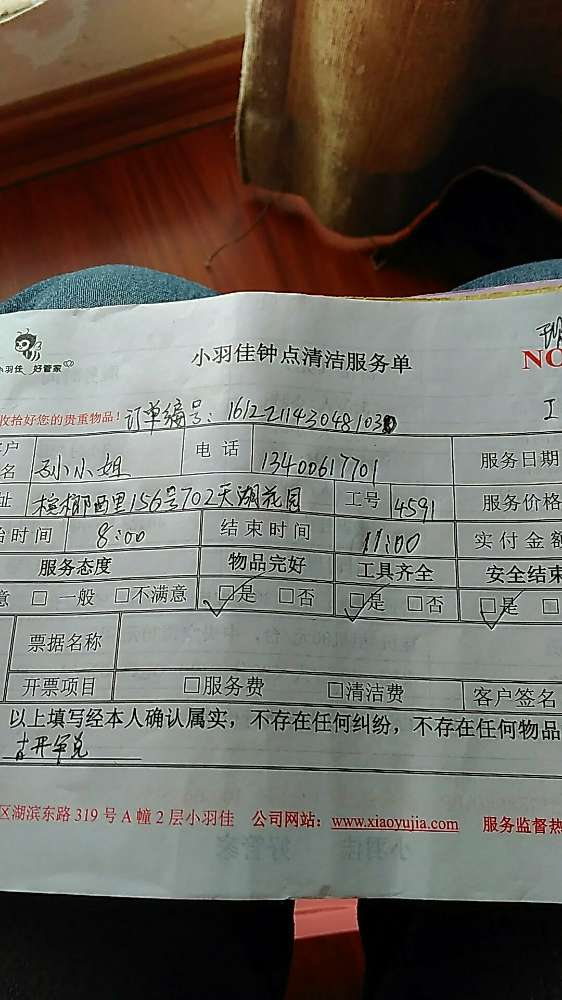 小羽佳 好管家
小羽佳钟点清洁服务单
NO
收拾好您的贵重物品! 订单编号: 1612211430481030
工
户
名 孙小姐 电话 13400617701 服务日期
址 槟榔西里156号702天湖花园 工号 4591 服务价格
时间 8:00 结束时间 11:00 实付金额
服务态度 物品完好 工具齐全 安全结束
意 □ 一般 □不满意 □是 □否 □是 □否 □是 □
票据名称
开票项目 □服务费 □清洁费 客户签名
以上填写经本人确认属实,不存在任何纠纷,不存在任何物品
区湖滨东路 319 号 A 幢 2 层小羽佳 公司网站: www.xiaoyujia.com 服务监督热